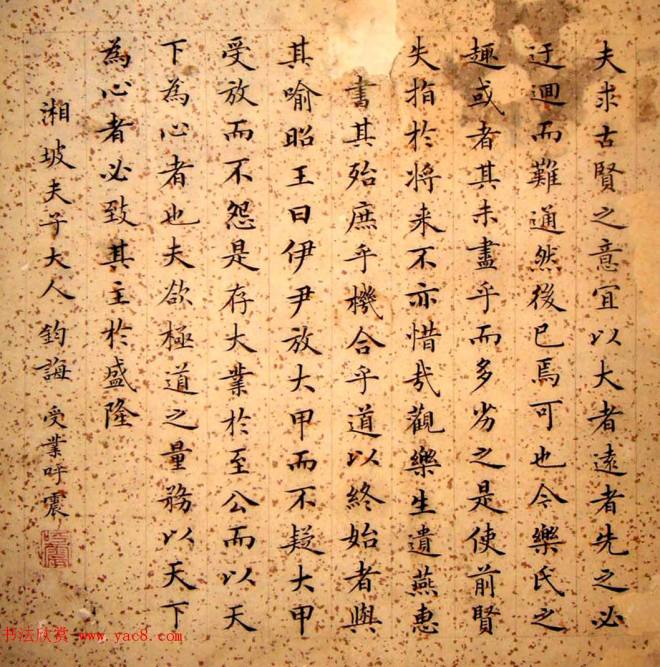 夫求古賢之意宜以大者遠者先之必
迂迴而難通然後已焉可也今樂氏之
趣或者其未盡乎而多劣之是使前賢
失指於將来不亦惜哉觀樂生遺燕惠
書其殆庶乎機合乎道以終始者與
其喻昭王曰伊尹放大甲而不疑大甲
受放而不怨是存大業於至公而以天
下為心者也夫欲極道之量務以天下
為心者必致其主於盛隆
湘坡夫子大人 鈞誨 受業吁震
书法欣赏 www.yac8.com